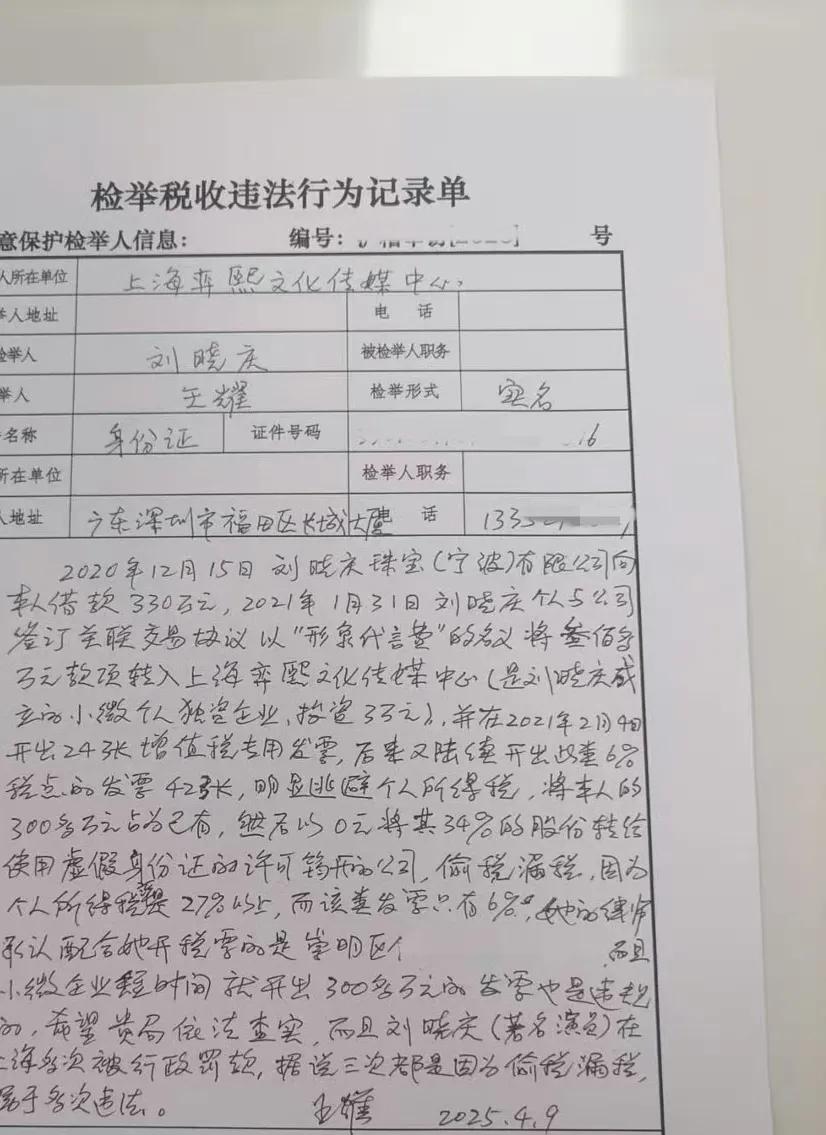 检举税收违法行为记录单
意保护检举人信息： 编号： 号
人所在单位 上海弈熙文化传媒中心.
举人地址 电 话
检举人 刘晓庆 被检举人职务
举人 王耀 检举形式 实名
名称 身份证 证件号码 16
所在单位 检举人职务
人地址 广东深圳市福田区长城大厦 电 话 133
2020年12月15日 刘晓庆珠宝(宁波)有限公司向
本人借款330万元, 2021年1月31日 刘晓庆个人与公司
签订关联交易协议 以"形象代言费"的名义 将叁佰多
万元款项转入上海弈熙文化传媒中心(是刘晓庆成
立的小微个人独资企业, 投资3万元), 并在2021年2月4日
开出24张增值税专用发票, 后来又陆续开出此类6%
税点的发票42张, 明显逃避个人所得税, 将本人的
300多万元占为已有, 然后以0元将其34%的股份转给
使用虚假身份证的许可筠开的公司, 偷税漏税, 因为
个人所得税是27%以上, 而该类发票只有6%, 她的律师
承认配合她开税票的是崇明区 而且
小微企业短时间就开出300多万元的发票也是违规
的, 希望贵局依法查实, 而且刘晓庆(著名演员)在
上海多次被行政罚款, 据说三次都是因为偷税漏税,
属于多次违法。 王耀 2025.4.9